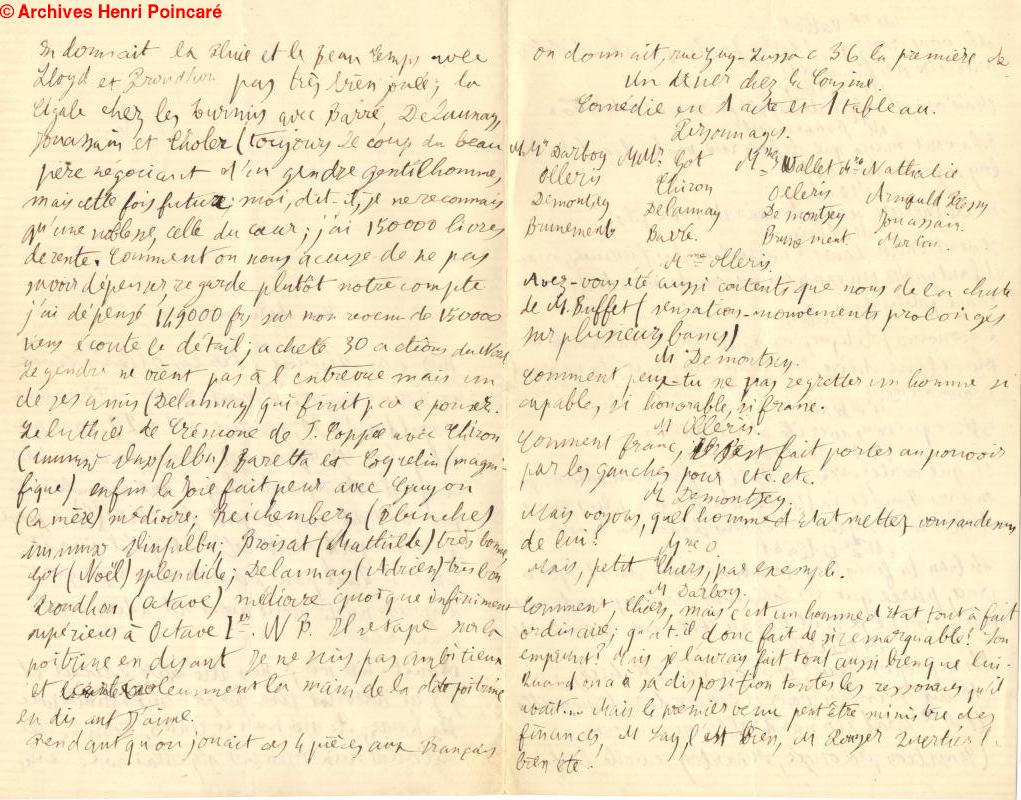 © Archives Henri Poincaré
on donnait la Pluie et le beau temps avec
Lloyd et Proudhon pas très bien joué; la
Cigale chez les fourmis avec Barré, Delaunay,
Jouassain et Choler (toujours le coup du beau
père négociant et d'un gendre gentilhomme,
mais cette fois future; moi, dit-il, je ne reconnais
qu'une noblesse, celle du cœur; j'ai 150000 livres
de rente. Comment on nous accuse de ne pas
savoir dépenser, regarde plutôt notre compte
j'ai dépensé 149000 frs sur mon revenu de 150000
tiens écoute le détail; acheté 30 actions du Nord
Le gendre ne vient pas à l'entrevue mais un
de ses amis (Delaunay) qui finit par épouser.
Le luthier de Crémone de F. Coppée avec Thiron
Baretta et Coquelin (magni-
fique) enfin la joie fait peur avec Guyon
(la mère) médiocre; Reichemberg (Blanche)
Broisat (Mathilde) très bonne,
Got (Noël) splendide; Delaunay (Adrien) très bon
Proudhon (Octave) médiocre quoique infiniment
supérieur à Octave 1er. NB. Il se tape sur la
poitrine en disant Je ne suis pas ambitieux
et violemment la main de la dite poitrine
en disant J'aime.
Pendant qu'on jouait ces 4 pièces aux Français
on donnait, rue Gay-Lussac 36 la première de
Un dîner chez la Cousine.
Comédie en 1 acte et 1 tableau.
Personnages.
M. Mr Darboy Mr Got Mmes Wallet Mme Nathalie
Olleris Thiron Olleris Arnould Plessy
Demontsey Delaunay Demontsey Jouassain.
Brunement Barré. Brunement.
Mme Olleris.
Avez-vous été aussi contents que nous de la chute
de M. Buffet (sensation-mouvements prolongés
sur plusieurs bancs)
M Demontsey.
Comment peux-tu ne pas regretter un homme si
capable, si honorable, si franc.
M Olleris.
Comment franc, il s'est fait porter au pouvoir
par les gauches pour etc. etc.
M Demontsey.
Mais voyons, quel homme d'Etat mettez vous au dessus
de lui?
Mme O.
Mais, petit Thiers, par exemple.
M Darboy.
Comment, Thiers, mais c'est un homme d'Etat tout à fait
ordinaire; qu'a t'il donc fait de si remarquable? Son
emprunt? Mais je l'aurais fait tout aussi bien que lui.
Quand on a à sa disposition toutes les ressources qu'il
avait... Mais le premier venu peut être ministre des
finances, M Say, l'est bien, M Pouyer Quertier l'a
bien été.